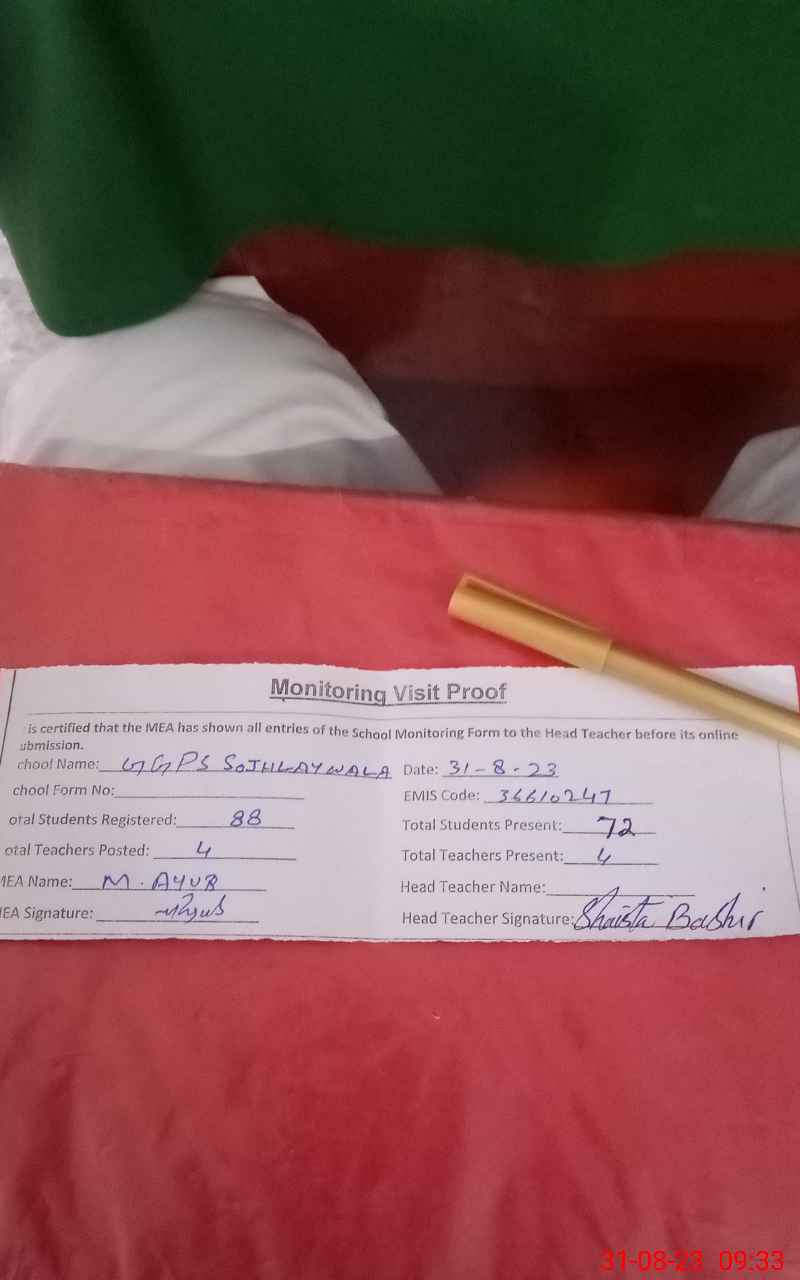 Monitoring Visit Proof
is certified that the MEA has shown all entries of the School Monitoring Form to the Head Teacher before its online
ubmission.
chool Name: GGPS SOJHLAYWALA Date: 31-8-23
chool Form No: EMIS Code: 36610247
otal Students Registered: 88 Total Students Present: 72
otal Teachers Posted: 4 Total Teachers Present: 4
MEA Name: M. AYUB Head Teacher Name:
EA Signature: Head Teacher Signature: Shaista Bashir
31-08-23 09:33